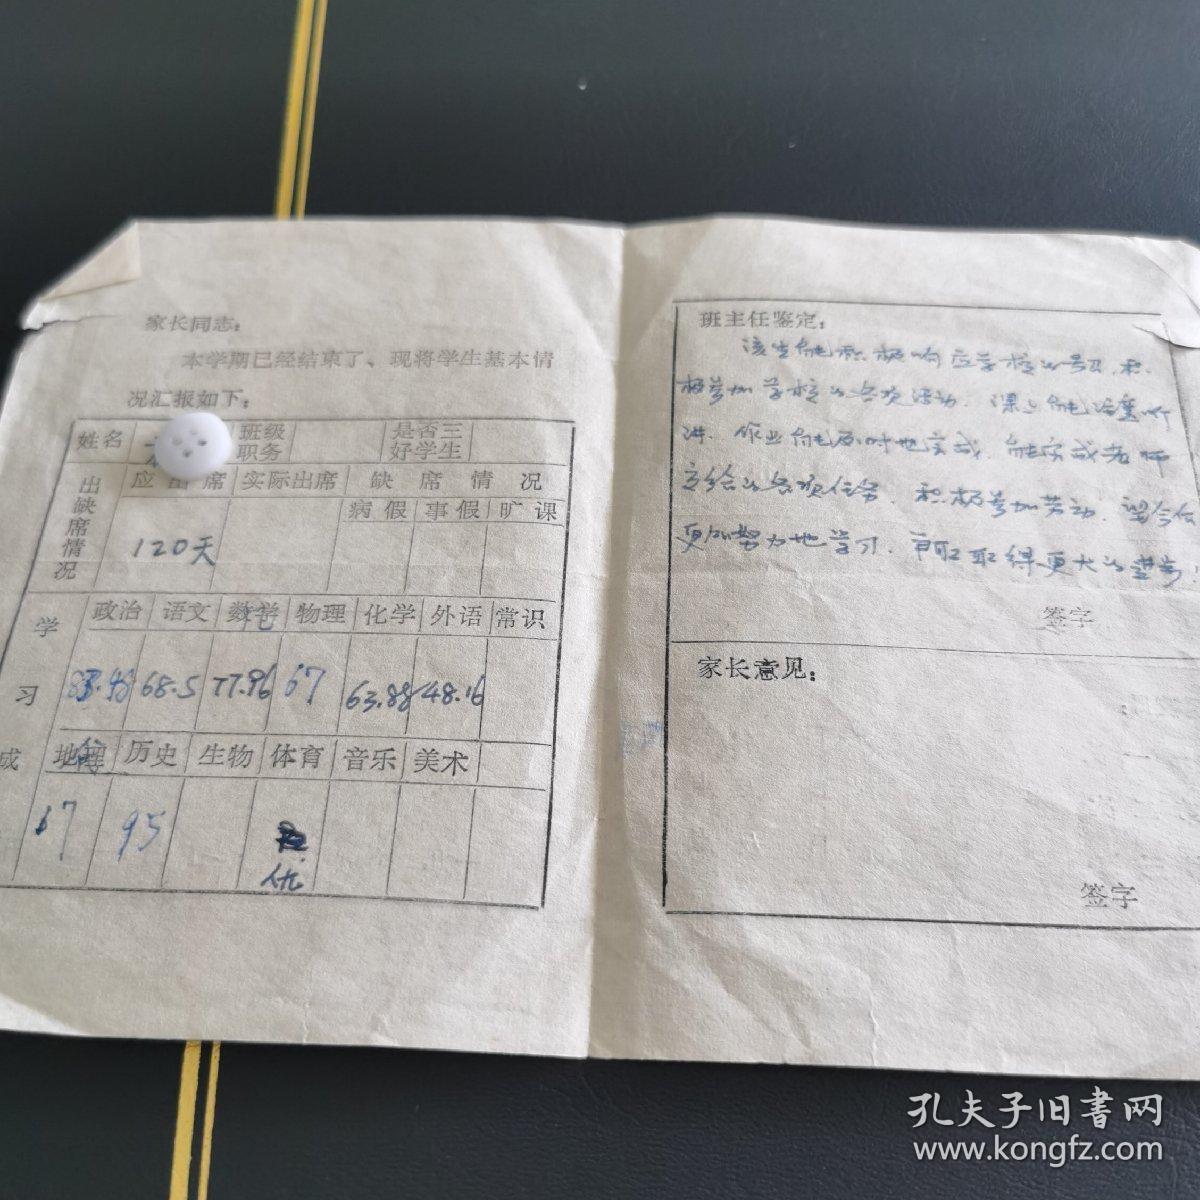 家长同志：
本学期已经结束了、现将学生基本情
况汇报如下：
姓名 班级职务 是否三好学生
出缺席情况 应出席 实际出席 缺席情况
病假 事假 旷课
120天
学习成 政治 语文 数学 物理 化学 外语 常识
83.48 68.5 77.96 67 63.88 48.16
地理 历史 生物 体育 音乐 美术
67 95
优
班主任鉴定：
该生能积极响应学校的号召，积
极参加学校的各项活动，课上能注意听
讲，作业能及时地完成，能完成老师
交给的各项任务，积极参加劳动，望今后
更加努力地学习，取得更大的进步！
签字
家长意见：
签字
孔夫子旧书网
www.kongfz.com